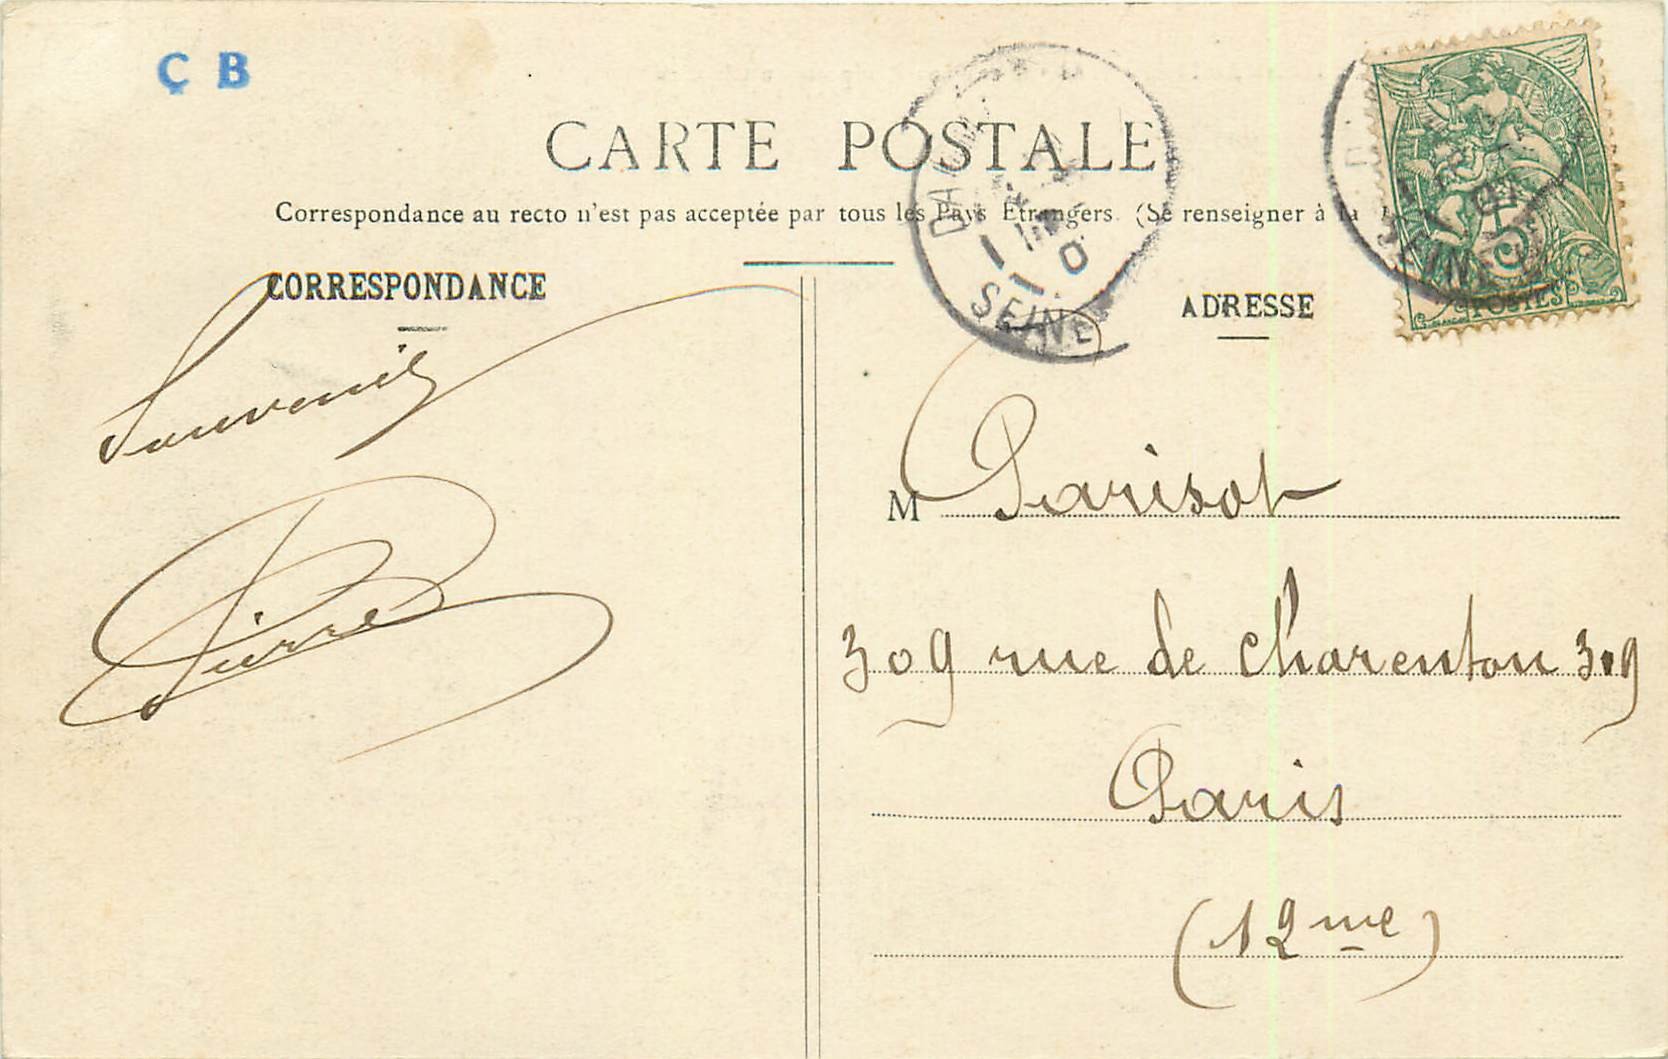 Ç B
CARTE POSTALE
Correspondance au recto n'est pas acceptée par tous les Pays Etrangers. (Se renseigner à la
CORRESPONDANCE
ADRESSE
SEINE
SEINE
5
POSTES
Souvenir
Pierre
M Parisot
309 rue de Charenton 309
Paris
(12me)